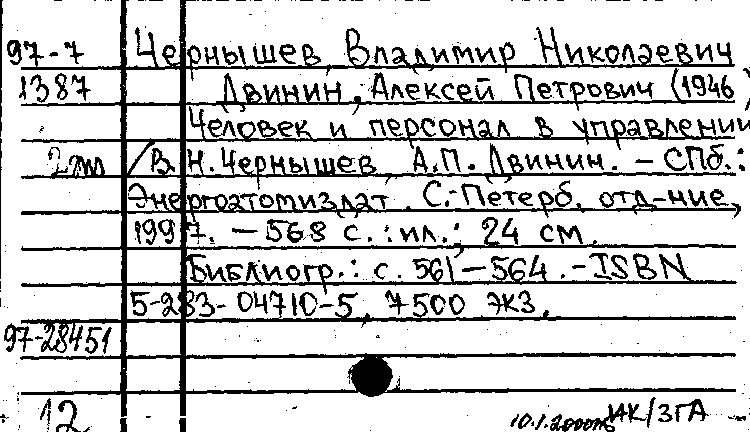 97-7 Чернышев, Владимир Николаевич
1387 Двинин, Алексей Петрович (1946
Человек и персонал в управлении
2 /В.Н. Чернышев, А.П. Двинин. – СПб.:
Энергоатомиздат. С.-Петерб. отд-ние,
1997. – 568 с. : ил.; 24 см.
Библиогр.: с. 561–564. – ISBN
5-283-04710-5, 7500 экз.
97-28451
12
10.1.2000 ИК/ЗГА